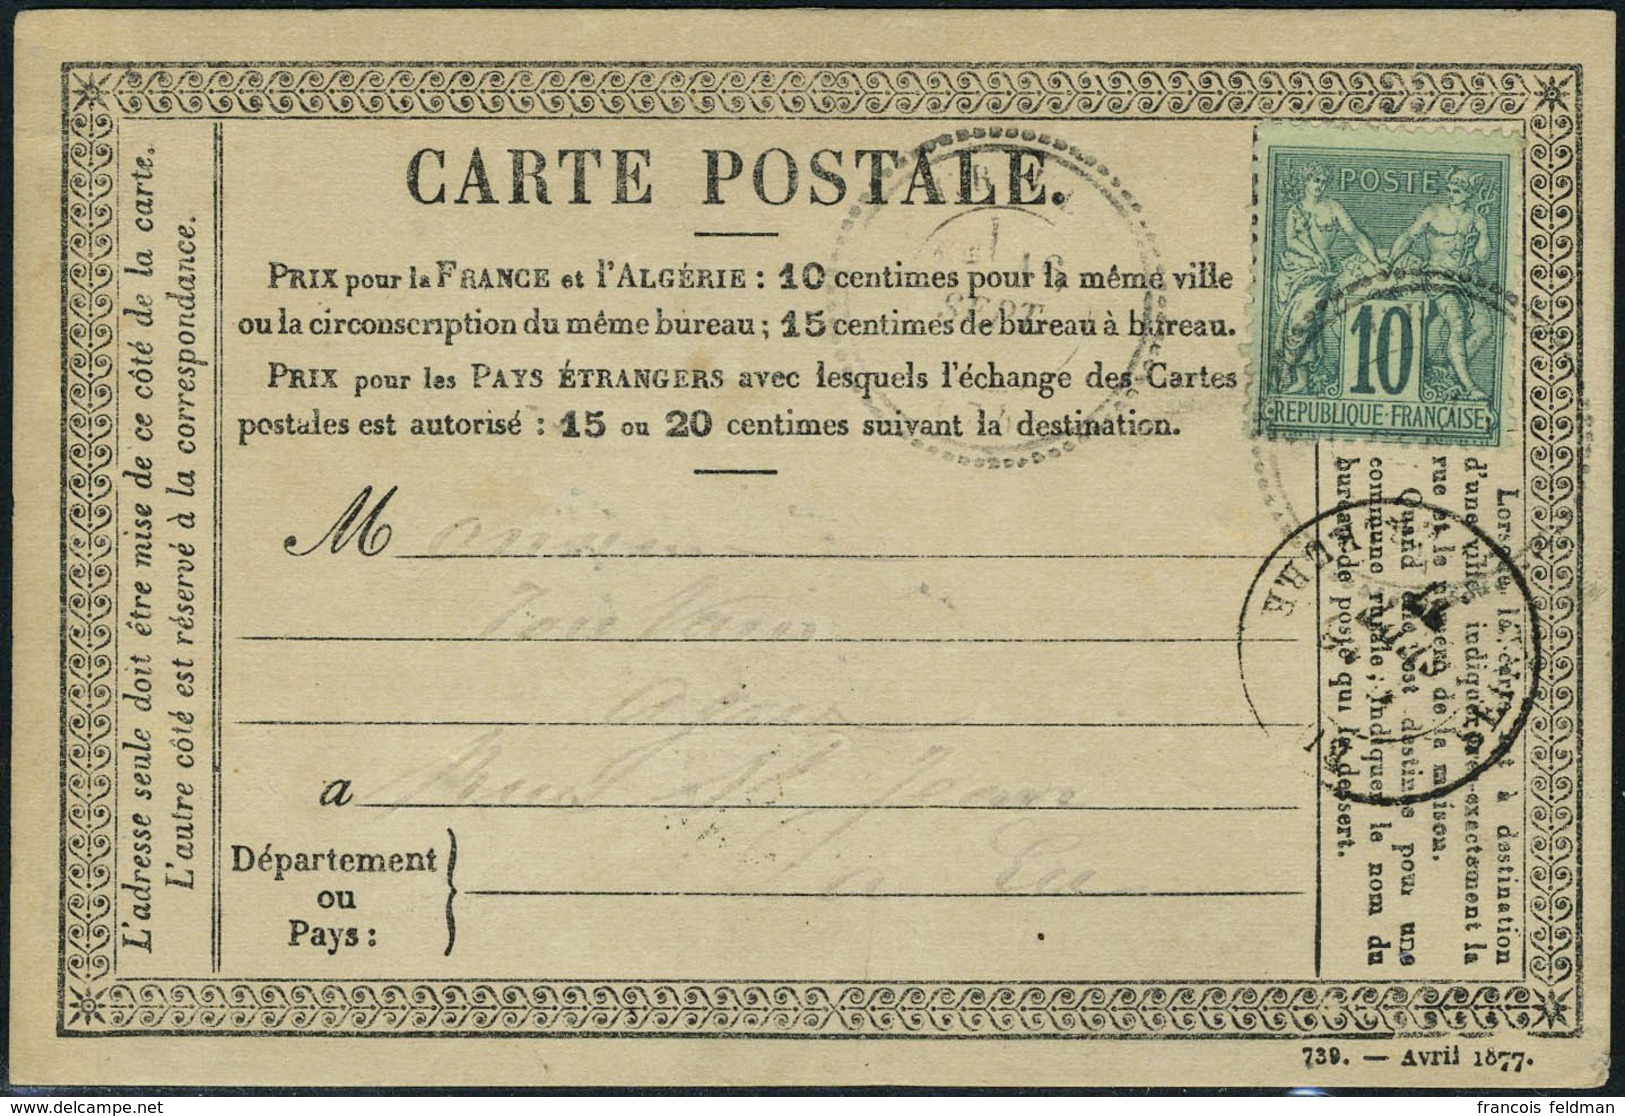 CARTE POSTALE.
PRIX pour la FRANCE et l'ALGÉRIE : 10 centimes pour la même ville
ou la circonscription du même bureau ; 15 centimes de bureau à bureau.
PRIX pour les PAYS ÉTRANGERS avec lesquels l'échange des Cartes
postales est autorisé : 15 ou 20 centimes suivant la destination.
L'adresse seule doit être mise de ce côté de la carte.
L'autre côté est réservé à la correspondance.
POSTE
10
REPUBLIQUE-FRANÇAISE
16
SEPT
M
a
Département
ou
Pays :
Lorsque la carte est à destination
d'une ville, indiquer exactement la
rue et le numéro de la maison.
Quand elle est destinée pour une
commune rurale, indiquer le nom du
bureau de poste qui la dessert.
SEPT
739. — Avril 1877.
delcampe.net
francois feldman